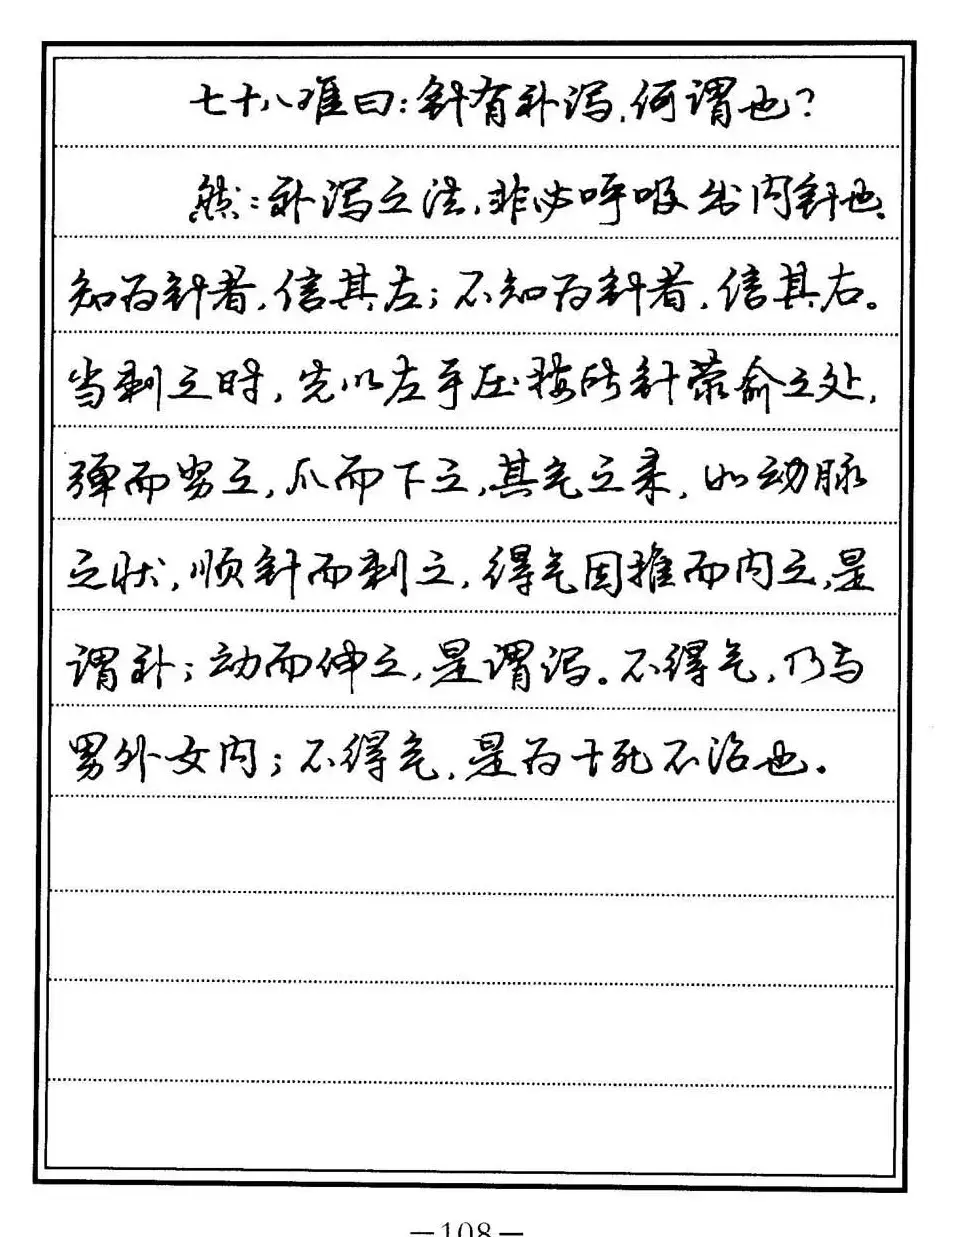 七十八难曰：针有补泻，何谓也？
然：补泻之法，非必呼吸出内针也。
知为针者，信其左；不知为针者，信其右。
当刺之时，先以左手压按所针荥俞之处，
弹而努之，爪而下之，其气之来，如动脉
之状，顺针而刺之，得气因推而内之，是
谓补；动而伸之，是谓泻。不得气，乃与
男外女内；不得气，是为十死不治也。
—108—